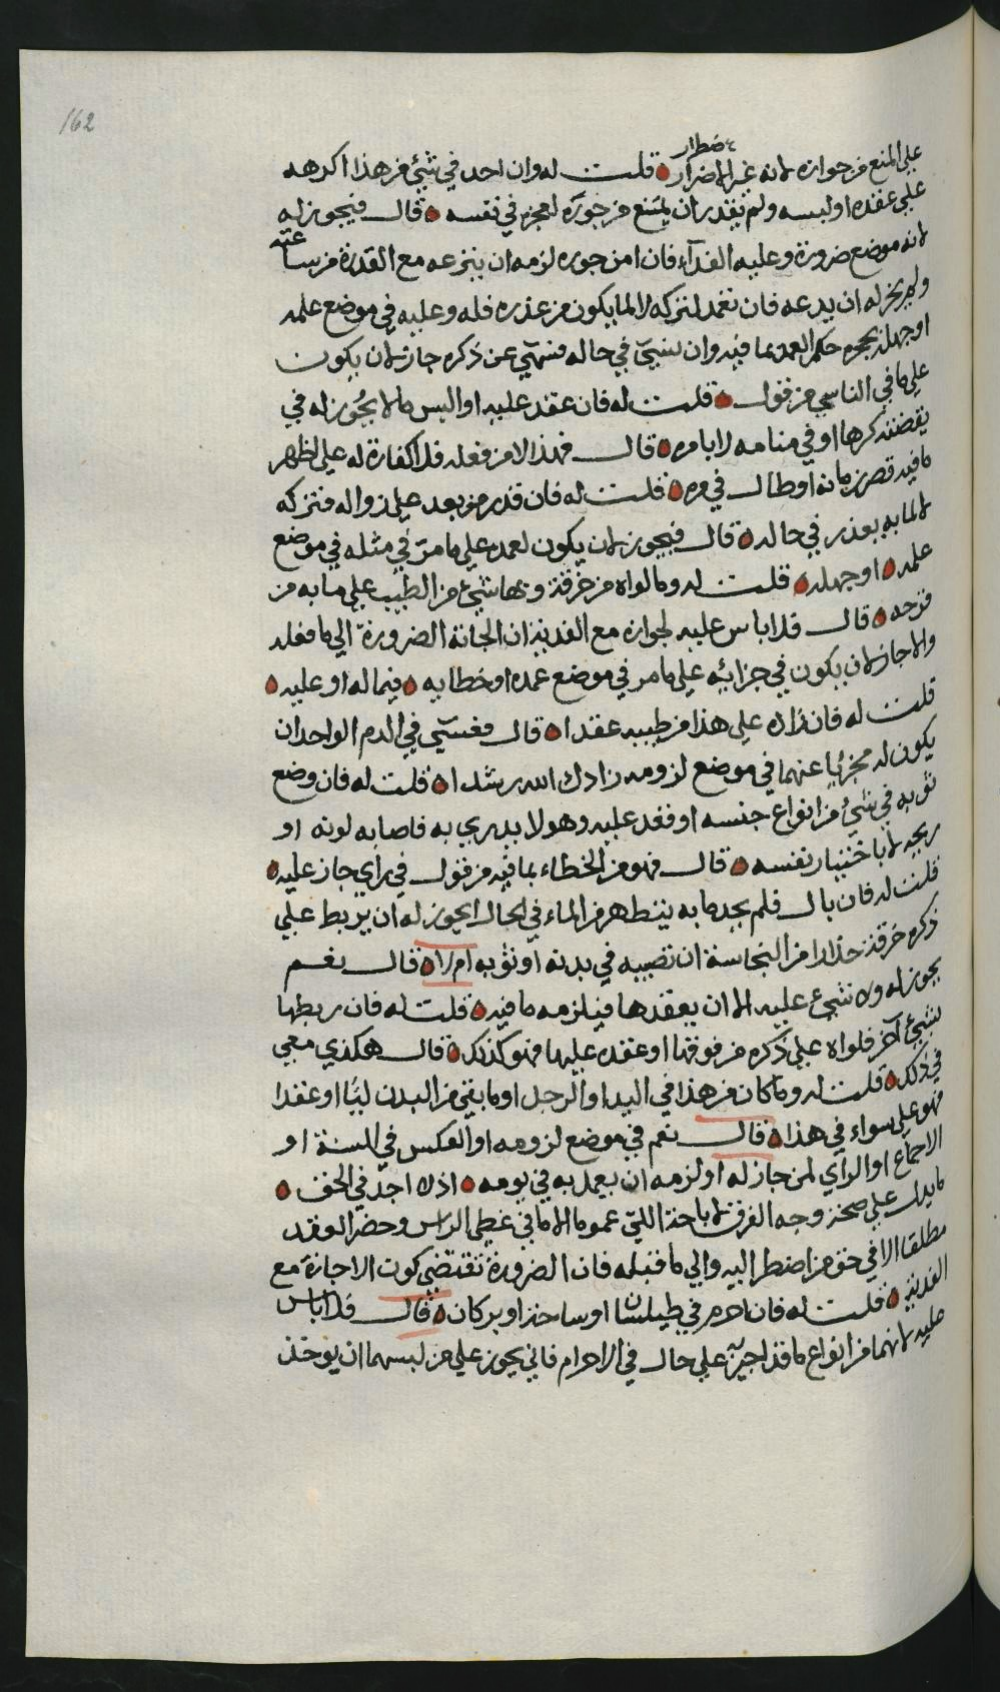 162
على المنع من جوازه لانه غير الاضرار ه قلت له وان احد في شيء من هذا اكرهه
اضطرار
على عقده او لبسه ولم يقدر ان يمتنع من جوره لعجزه في نفسه ه قال فيجوز له
لانه موضع ضرورة وعليه الفدآء فان امن جوره لزمه ان ينزعه مع القدرة من ساعته
ولم يجز له ان يدعه فان تعمد لتركه لا لما يكون من عذره فله وعليه في موضع علمه
او جهله بجوره حكم العمد بما فيه وان نسي في حاله فنسي عن ذكره جاز لان يكون
على ما في الناسي من قول ه قلت له فان عقد عليه او البس ما لا يجوز له في
يقضته كرها او في منامه لا بامره ه قال فهذا لا من فعله فلا كفارة له على اظهر
ما فيه قصر زمانه او طال في مره ه قلت له فان قدر من بعد على زواله فتركه
لا لما به يعذر في حاله ه قال فيجوز لان يكون لعمده على ما مرّ في مثله في موضع
علمه ه او جهله ه قلت له وما لواه من خرقة وبها شيء من الطيب على ما به من
قرحه ه قال فلا باس عليه لجوازه مع الفدية ان الجاته الضرورة الى ما فعله
والا جاز لان يكون في جزائه على ما مر في موضع عمده او خطايه ه فيما له او عليه ه
قلت له فان زاده على هذا من طيبه عقدا ه قال فعسى في الدم الواحد ان
يكون له مجزيا عنهما في موضع لزومه زادك الله رشدا ه قلت له فان وضع
ثوبه في شيء من انواع جنسه او قعد عليه وهو لا يدري به فاصابه لونه او
ريحه لا باختيار نفسه ه قال فهو من الخطاء بما فيه من قول في راي جاز عليه ه
قلت له فان بال فلم يجد ما به يتطهر من الماء في الحال ايجوز له ان يربط على
ذكره خرقة حذارا من النجاسة ان تصيبه في بدنه او ثوبه ام لا ه قال نعم
يجوز له ولا شيء عليه الا ان يعقدها فيلزمه ما فيه ه قلت له فان ربطها
بشيء آخر فلواه على ذكره من فوقها او عقده عليها فهو كذلك ه قال هكذي معي
في ذلك ه قلت له وما كان من هذا في اليد او الرجل او ما بقي من البدن ليّا او عقدا
فهو على سواء في هذا ه قال نعم في موضع لزومه او العكس في السنة او
الاجماع او الراي لمن جاز له او لزمه ان يعمل به في يومه ه اذ لا اجد في الحق ه
ما يدل على صحة وجه الفرق لاباحة اللي عموما الا ما في غطى الراس وحضر العقد
مطلقا الا في حق من اضطر اليه والى ما قبله فان الضرورة تقتضي كون الاجازة مع
الفدية ه قلت له فان احرم في طيلسان او ساحة او بركان ه قال فلا باس
عليه لانهما من انواع ما قد اجيز على حال في الاحرام فاني يجوز على من لبسهما ان يوخذ